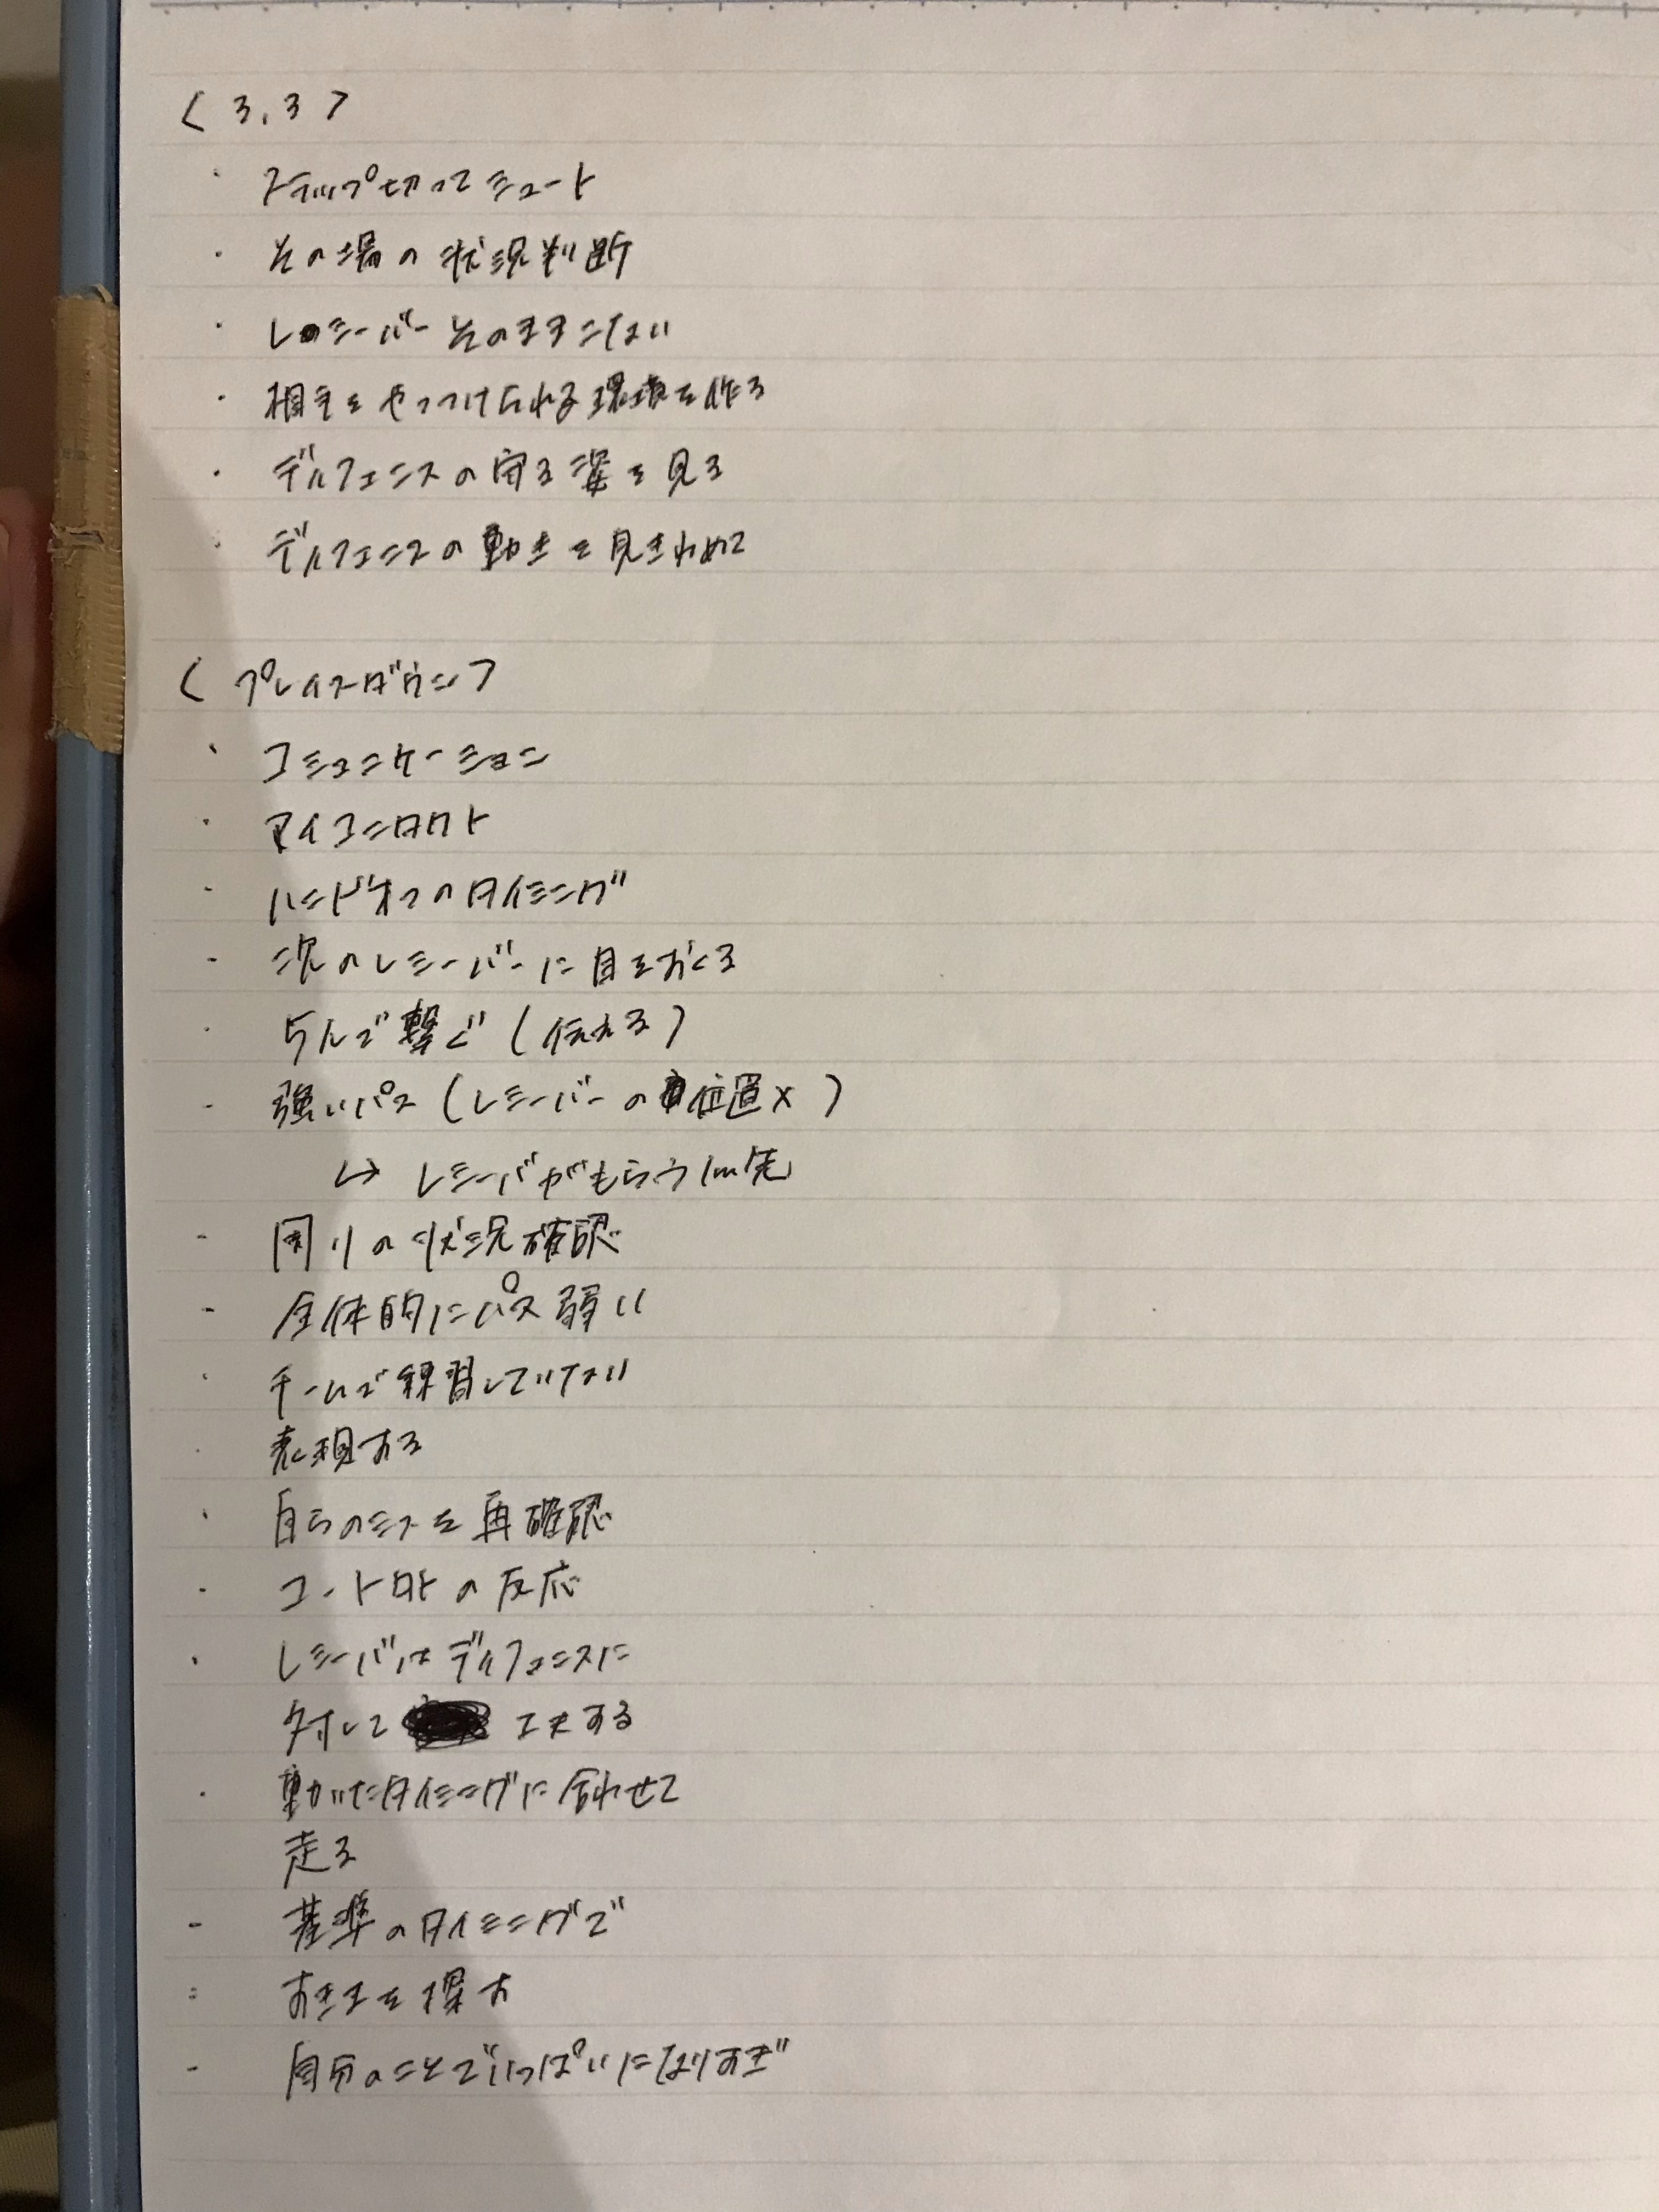 〈 3.3 〉
・ ステップ切ってシュート
・ その場の状況判断
・ レシーバーそのままこない
・ 相手をやっつけられる環境を作る
・ ディフェンスの守る姿を見る
・ ディフェンスの動きを見きわめて
〈 プレイスダウン 〉
・ コミュニケーション
・ アイコンタクト
・ ハンドオフのタイミング
・ 次のレシーバーに目をおくる
・ 5人で繋ぐ(伝える)
・ 強いパス(レシーバーの位置×)
↳ レシーバがもらう1m先
・ 周りの状況確認
・ 全体的にパス弱い
・ チームで練習していない
・ 表現する
・ 自らのミスを再確認
・ の反応
・ レシーバはディフェンスに
対して 工夫する
・ 動いたタイミングに合わせて
走る
・ 基準のタイミングで
・ すきまを探す
・ 自分のことでいっぱいになりすぎ